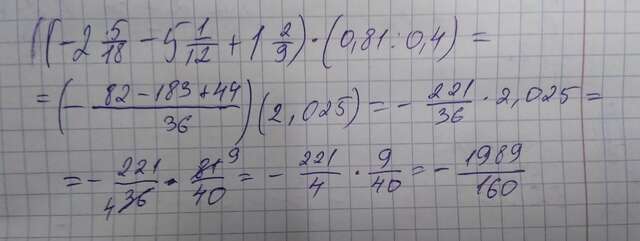 ((-2 5/18 - 5 1/12 + 1 2/9) · (0,81 : 0,4) =
= (- 82 - 183 + 44 / 36) (2,025) = - 221/36 · 2,025 =
= - 221/4 36 · 81 9/40 = - 221/4 · 9/40 = - 1989/160